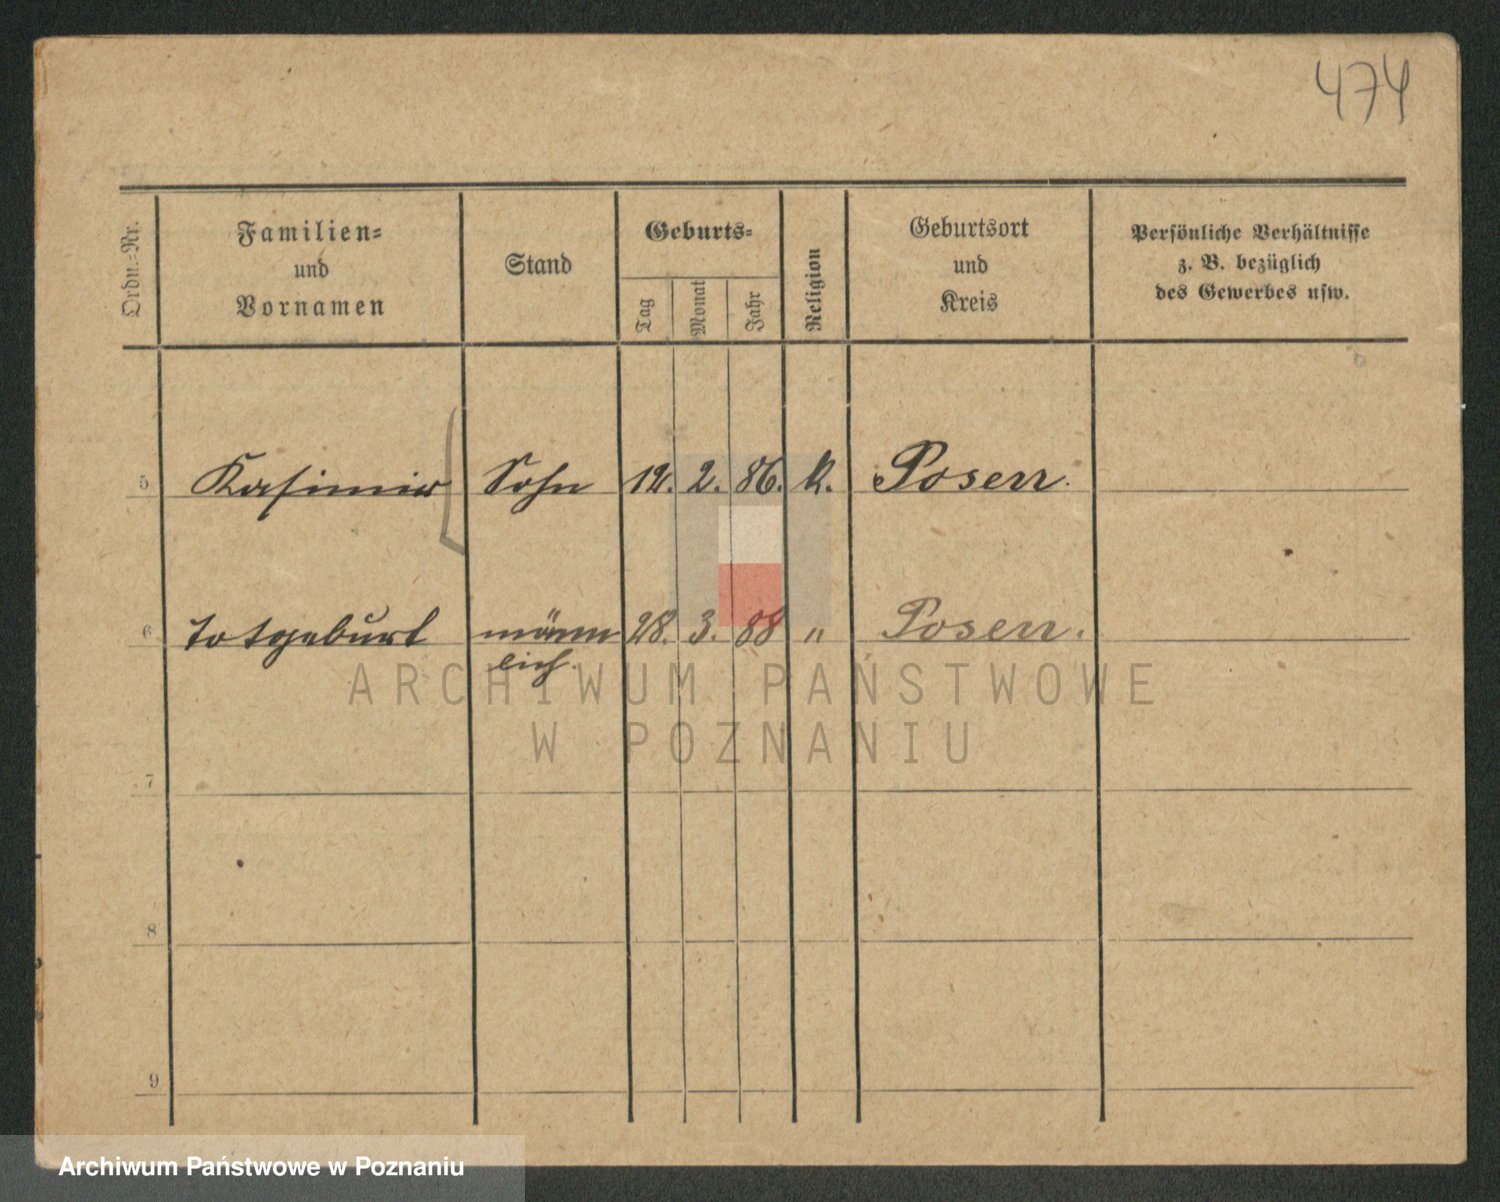 474
Ordn.-Nr.
Familien-
und
Vornamen
Stand
Geburts-
Tag
Monat
Jahr
Religion
Geburtsort
und
Kreis
Persönliche Verhältnisse
z. B. bezüglich
des Gewerbes usw.
5 Kasimir Sohn 12. 2. 86. k. Posen.
6 Totgeburt männ 28. 3. 88 " Posen.
lich.
ARCHIWUM PAŃSTWOWE
W POZNANIU
7
8
9
Archiwum Państwowe w Poznaniu